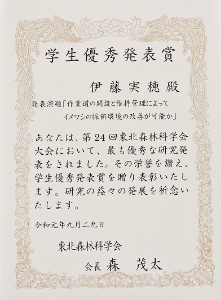 学生優秀発表賞
伊藤実穂殿
発表演題「作業道の開設と維持管理によって
イヌワシの採餌環境の改善が可能か」
あなたは、第24回東北森林科学会
大会において、最も優秀な研究発
表をされました。その栄誉を讃え、
学生優秀発表賞を贈り表彰いたし
ます。研究の益々の発展を祈念い
たします。
令和元年九月二九日
東北森林科学会
会長 森 茂太